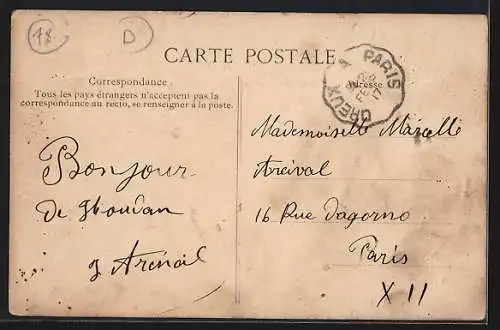 78
D
CARTE POSTALE
Correspondance
Tous les pays étrangers n'acceptent pas la
correspondance au recto, se renseigner à la poste.
Adresse
PARIS
DREUX
Bonjour
de Houdan
Mademoiselle Marcelle
16 Rue Dagorno
Paris
X II